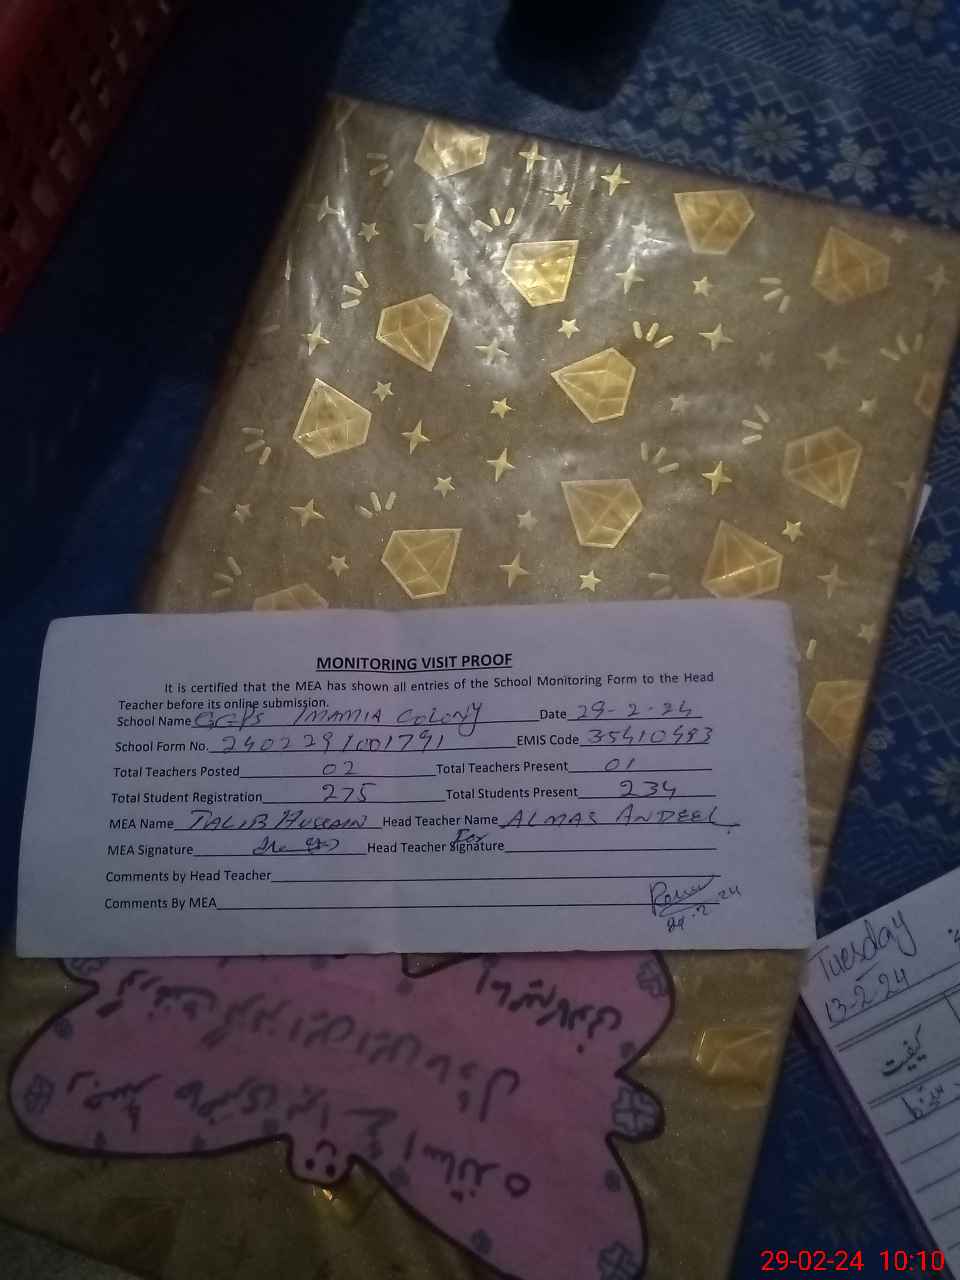 MONITORING VISIT PROOF
It is certified that the MEA has shown all entries of the School Monitoring Form to the Head
Teacher before its online submission.
School Name GGPS IMAMIA COLONY Date 29-2-24
School Form No. 2402291001791 EMIS Code 35410483
Total Teachers Posted 02 Total Teachers Present 01
Total Student Registration 275 Total Students Present 234
MEA Name TALIB HUSSAIN Head Teacher Name ALMAS ANDEEL
MEA Signature Head Teacher Signature For
Comments by Head Teacher
Comments By MEA
29-2-24
Tuesday
13-2-24
کیفیت
اساتذہ
29-02-24 10:10